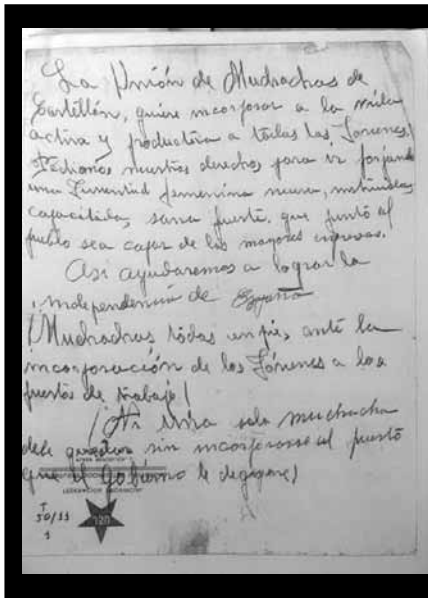 La Unión de Muchachas de
Castellón, quiere incorporar a la vida
activa y productiva a todas las Jóvenes!
Pedimos nuestros derechos para ir forjando
una Juventud femenina nueva, instruida,
capacitada, sana fuerte, que junto al
pueblo sea capaz de las mayores empresas.
Asi ayudaremos a lograr la
independencia de España
¡Muchachas todas en pie, ante la
incorporación de las Jóvenes a los
puestos de trabajo!
¡Ni una sola muchacha
debe quedar sin incorporarse al puesto
que el Gobierno le designe!
I
50/11
1
120